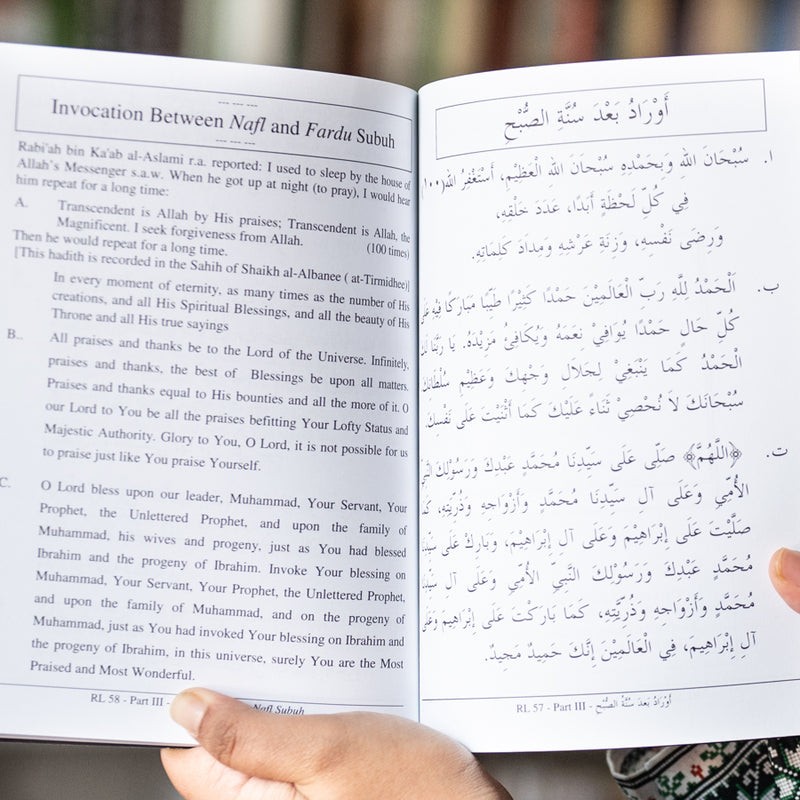 --- --- ---
Invocation Between Nafl and Fardu Subuh
--- --- ---
Rabi'ah bin Ka'ab al-Aslami r.a. reported: I used to sleep by the house of
Allah's Messenger s.a.w. When he got up at night (to pray), I would hear
him repeat for a long time:
A. Transcendent is Allah by His praises; Transcendent is Allah, the
Magnificent. I seek forgiveness from Allah. (100 times)
Then he would repeat for a long time.
[This hadith is recorded in the Sahih of Shaikh al-Albanee ( at-Tirmidhee)]
In every moment of eternity, as many times as the number of His
creations, and all His Spiritual Blessings, and all the beauty of His
Throne and all His true sayings
B.. All praises and thanks be to the Lord of the Universe. Infinitely,
praises and thanks, the best of Blessings be upon all matters.
Praises and thanks equal to His bounties and all the more of it. O
our Lord to You be all the praises befitting Your Lofty Status and
Majestic Authority. Glory to You, O Lord, it is not possible for us
to praise just like You praise Yourself.
C. O Lord bless upon our leader, Muhammad, Your Servant, Your
Prophet, the Unlettered Prophet, and upon the family of
Muhammad, his wives and progeny, just as You had blessed
Ibrahim and the progeny of Ibrahim. Invoke Your blessing on
Muhammad, Your Servant, Your Prophet, the Unlettered Prophet,
and upon the family of Muhammad, and on the progeny of
Muhammad, just as You had invoked Your blessing on Ibrahim and
the progeny of Ibrahim, in this universe, surely You are the Most
Praised and Most Wonderful.
RL 58 - Part III - Nafl Subuh
أَوْرَادُ بَعْدَ سُنَّةِ الصُّبْحِ
١. سُبْحَانَ اللهِ وَبِحَمْدِهِ سُبْحَانَ اللهِ الْعَظِيْمِ، أَسْتَغْفِرُ الله(١٠٠)
فِي كُلِّ لَحْظَةٍ أَبَدًا، عَدَدَ خَلْقِهِ،
وَرِضَى نَفْسِهِ، وَزِنَةِ عَرْشِهِ وَمِدَادَ كَلِمَاتِهِ.
ب. اَلْحَمْدُ لِلَّهِ رَبِّ الْعَالَمِيْنَ حَمْدًا كَثِيْرًا طَيِّبًا مُبَارَكًا فِيْهِ عَلَى
كُلِّ حَالٍ حَمْدًا يُوَافِيْ نِعَمَهُ وَيُكَافِئُ مَزِيْدَهُ. يَا رَبَّنَا لَكَ
الْحَمْدُ كَمَا يَنْبَغِيْ لِجَلَالِ وَجْهِكَ وَعَظِيْمِ سُلْطَانِكَ
سُبْحَانَكَ لاَ نُحْصِيْ ثَنَاءً عَلَيْكَ كَمَا أَثْنَيْتَ عَلَى نَفْسِكَ.
ت. ﴿اللَّهُمَّ﴾ صَلِّى عَلَى سَيِّدِنَا مُحَمَّدٍ عَبْدِكَ وَرَسُوْلِكَ النَّبِيِّ
الْأُمِّي وَعَلَى آلِ سَيِّدِنَا مُحَمَّدٍ وَأَزْوَاجِهِ وَذُرِّيَّتِهِ، كَمَا
صَلَّيْتَ عَلَى إِبْرَاهِيْمَ وَعَلَى آلِ إِبْرَاهِيْمَ، وَبَارِكْ عَلَى سَيِّدِنَا
مُحَمَّدٍ عَبْدِكَ وَرَسُوْلِكَ النَّبِيِّ الْأُمِّي وَعَلَى آلِ سَيِّدِنَا
مُحَمَّدٍ وَأَزْوَاجِهِ وَذُرِّيَّتِهِ، كَمَا بَارَكْتَ عَلَى إِبْرَاهِيْمَ وَعَلَى
آلِ إِبْرَاهِيمَ، فِي الْعَالَمِيْنَ إِنَّكَ حَمِيدٌ مَجِيدٌ.
RL 57 - Part III - أَوْرَادُ بَعْدَ سُنَّةُ الصُّبْحِ